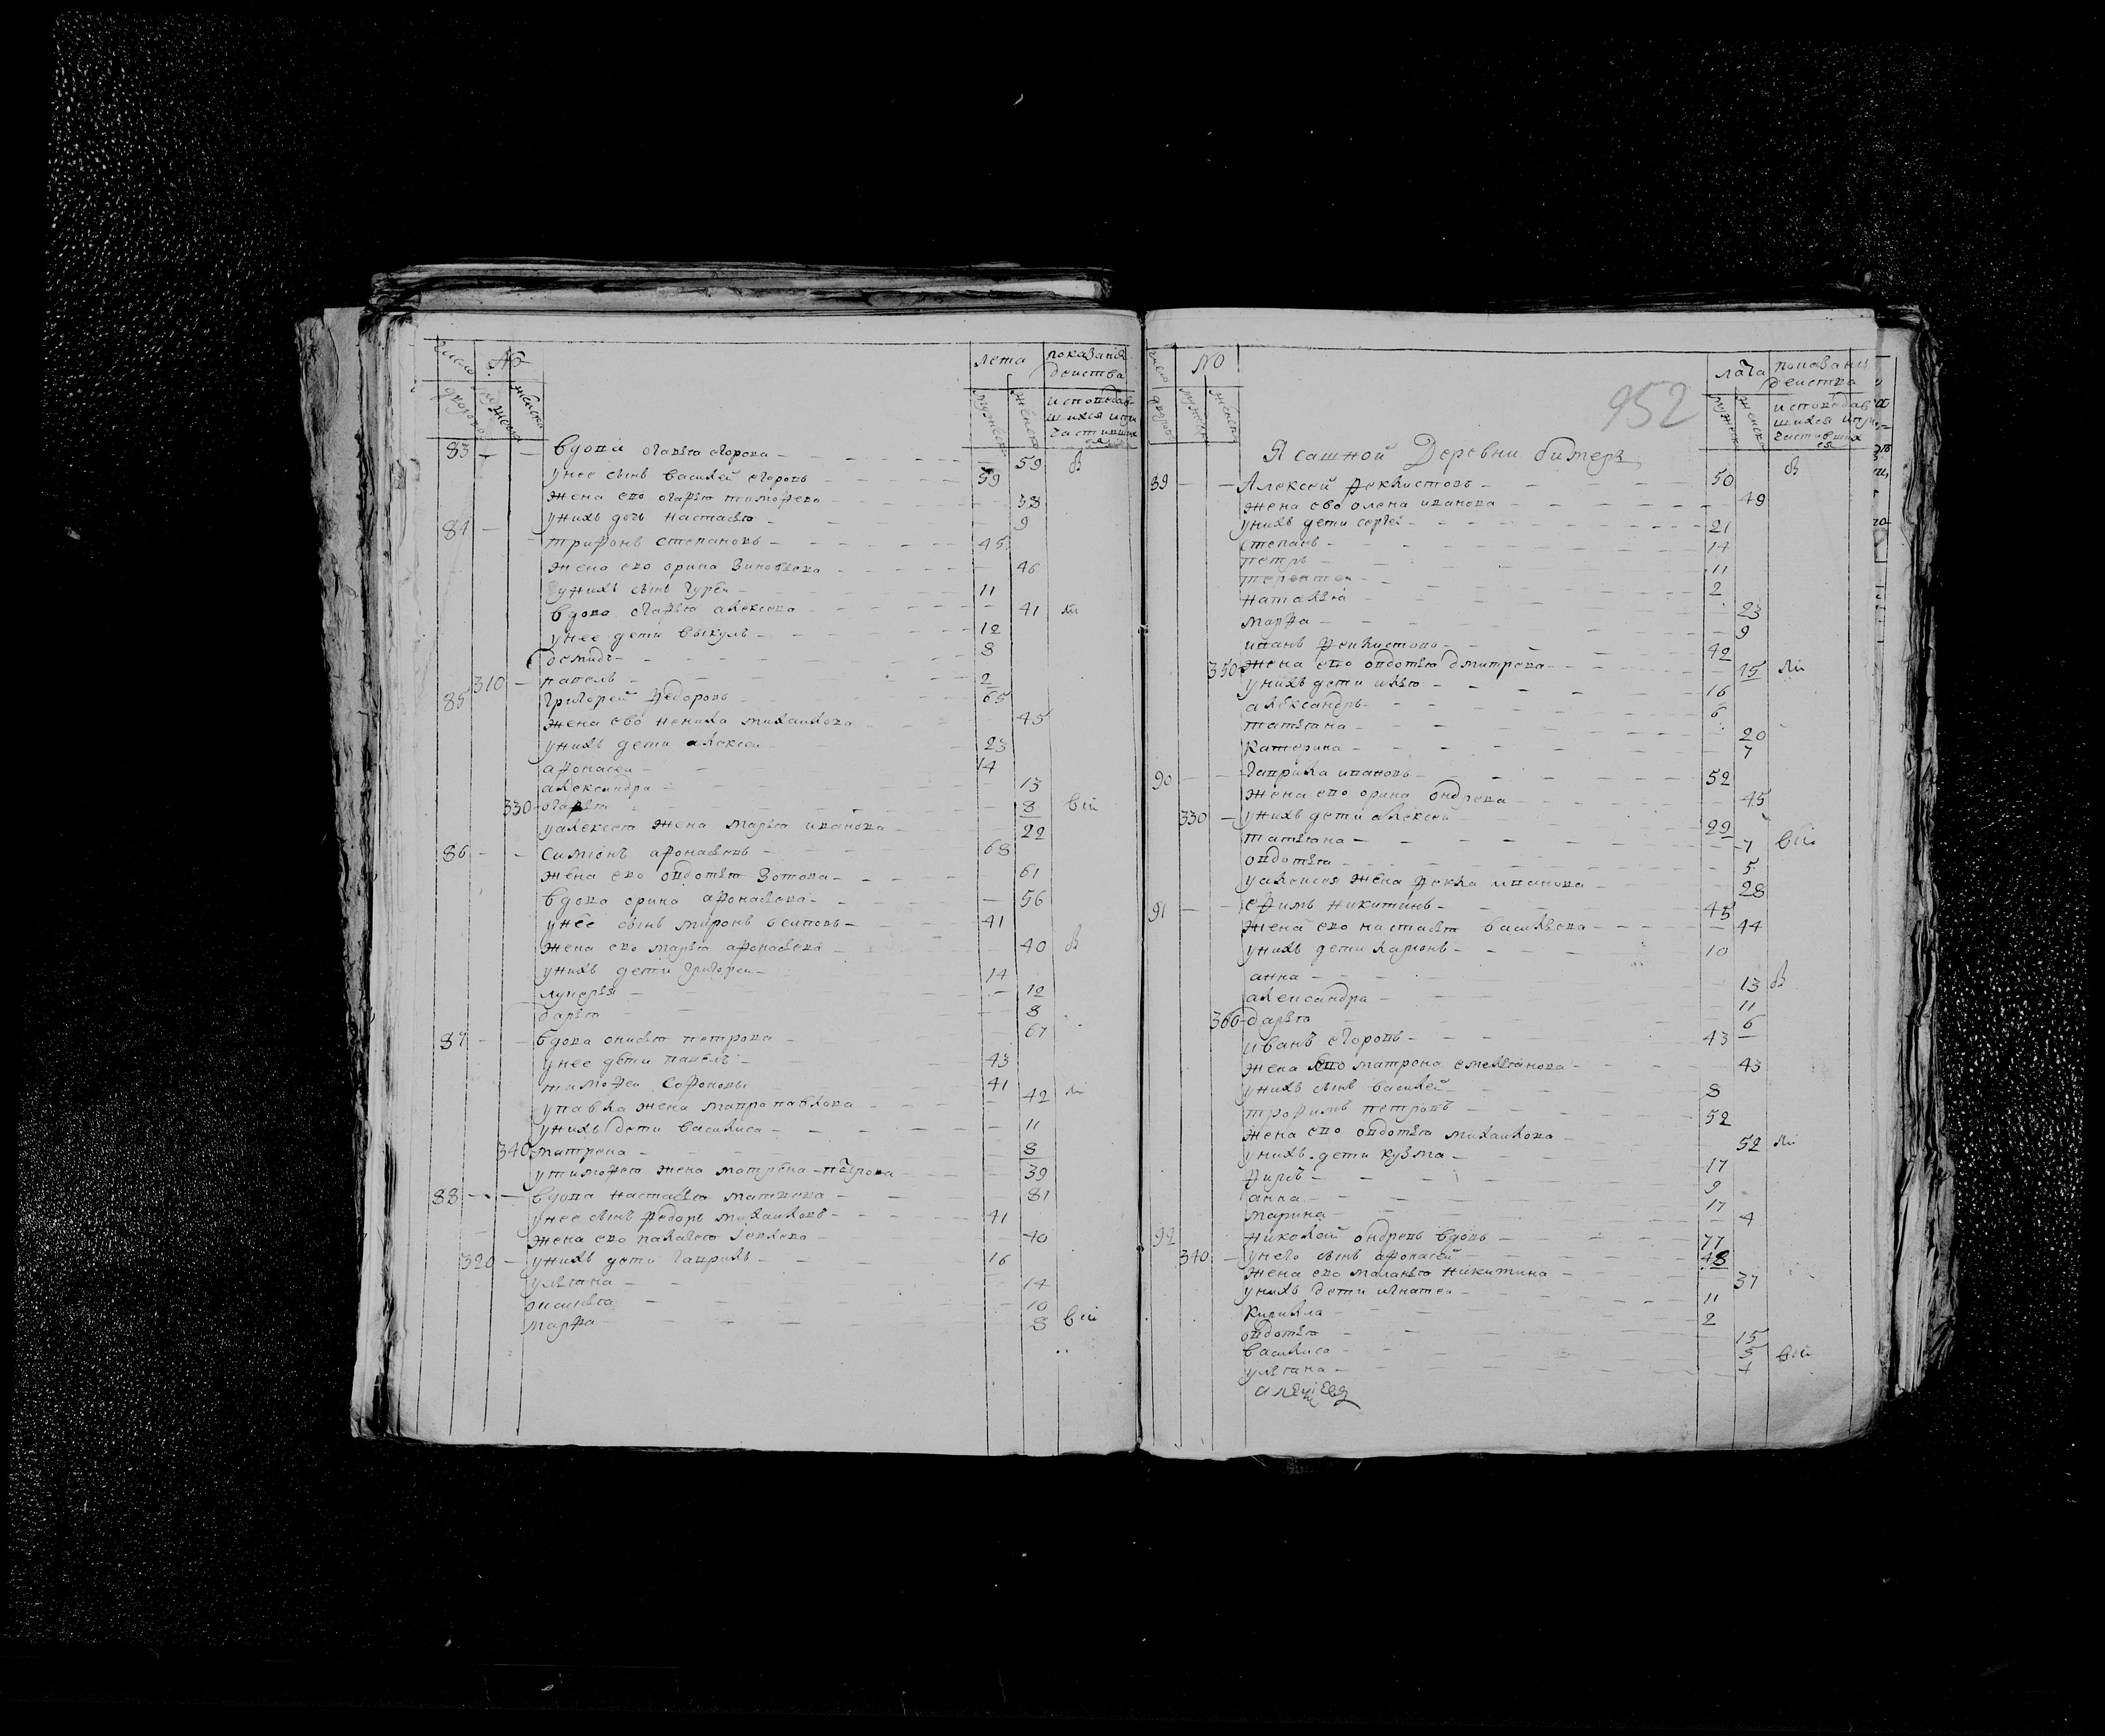 число дворовъ № мужеска женска лета мужеска женска показанія действа исповедавшихся ипричастившихся
83 — — вдова огавья егорова — 59
унее сынъ василей егоровъ — 39
жена ево огафья тимофева — 38
унихъ дочь настасья — 9
84 — трифонъ степановъ — 45
жена ево орина зиновьева — 46
унихъ сынъ гурей — 11
вдова огафья алексева — 41
унее дети викулъ — 12
демидъ — 8
310 — павелъ — 2
85 григорей федоровъ 65
жена ево михаилова 45
унихъ дети алексеи — 23
афонасеи — 14
александра — 13
330 огафья — 8 вси
уалексея жена марья иванова — 22
86 — — симіонъ афонасьевъ — 68
жена ево овдотья зотова — 61
вдова орина афонасьева — 56
унее сынъ миронъ осиповъ — 41
жена ево марья афонасьева 40
унихъ дети григореи — 14
лукерья — 12
дарья — 8
87 — — вдова онисья петрова — 67
унее дети павелъ — 43
тимофеи софоновы 41
упавла жена мавра павлова — 42
унихъ дети василиса — 11
340 матрена — 8
утимофея жена матрена петрова — 39
88 — — вдова настасья маткеева — 81
унее сынъ федоръ михаиловъ — 41
жена ево палагея — 40
320 — унихъ дети гаврилъ — 16
ульяна — 14
10
марфа — 8 вси
число дворовъ № мужеска женска лета мужеска женска показаніи действа исповедавшихся ипричаставшихся
952
Ясашной Деревни битери
89 — — Алексей феклистовъ — 50
жена ево олена иванова — 49
унихъ дети сергей — 21
степанъ — 14
петръ — 11
терентеи — 2
наталья — 23
марфа — 9
иванъ феклистовъ — 42
350 жена ево овдотья дмитрева — 45
унихъ дети илья — 16
александръ — 6
татьяна — 20
катерина — 7
90 — — гаврила ивановъ — 52
жена ево орина ондрева — 45
330 — унихъ дети алексеи 29
татьяна — 7 вси
овдотья — 5
уалексея жена фекла иванова — 28
91 — — ефимъ никитинъ — 45
жена ево настасья васильева — 44
унихъ дети ларионъ — 10
анна — 13
александра — 11
360 дарья — 6
иванъ егоровъ — 43
жена ево матрена емельянова — 43
унихъ сынъ василей — 8
трофимъ петровъ — 52
жена ево овдотья михаилова — 52
унихъ дети кузма — 17
фирсъ — 9
анна — 17
марина — 4
92 николай ондревъ вдовъ — 77
340 — унего сынъ афонасей 48
жена ево маланья никитина — 37
унихъ дети игнатеи — 11
кирилла — 2
овдотья — 15
василиса — 5 вси
ульяна — 4